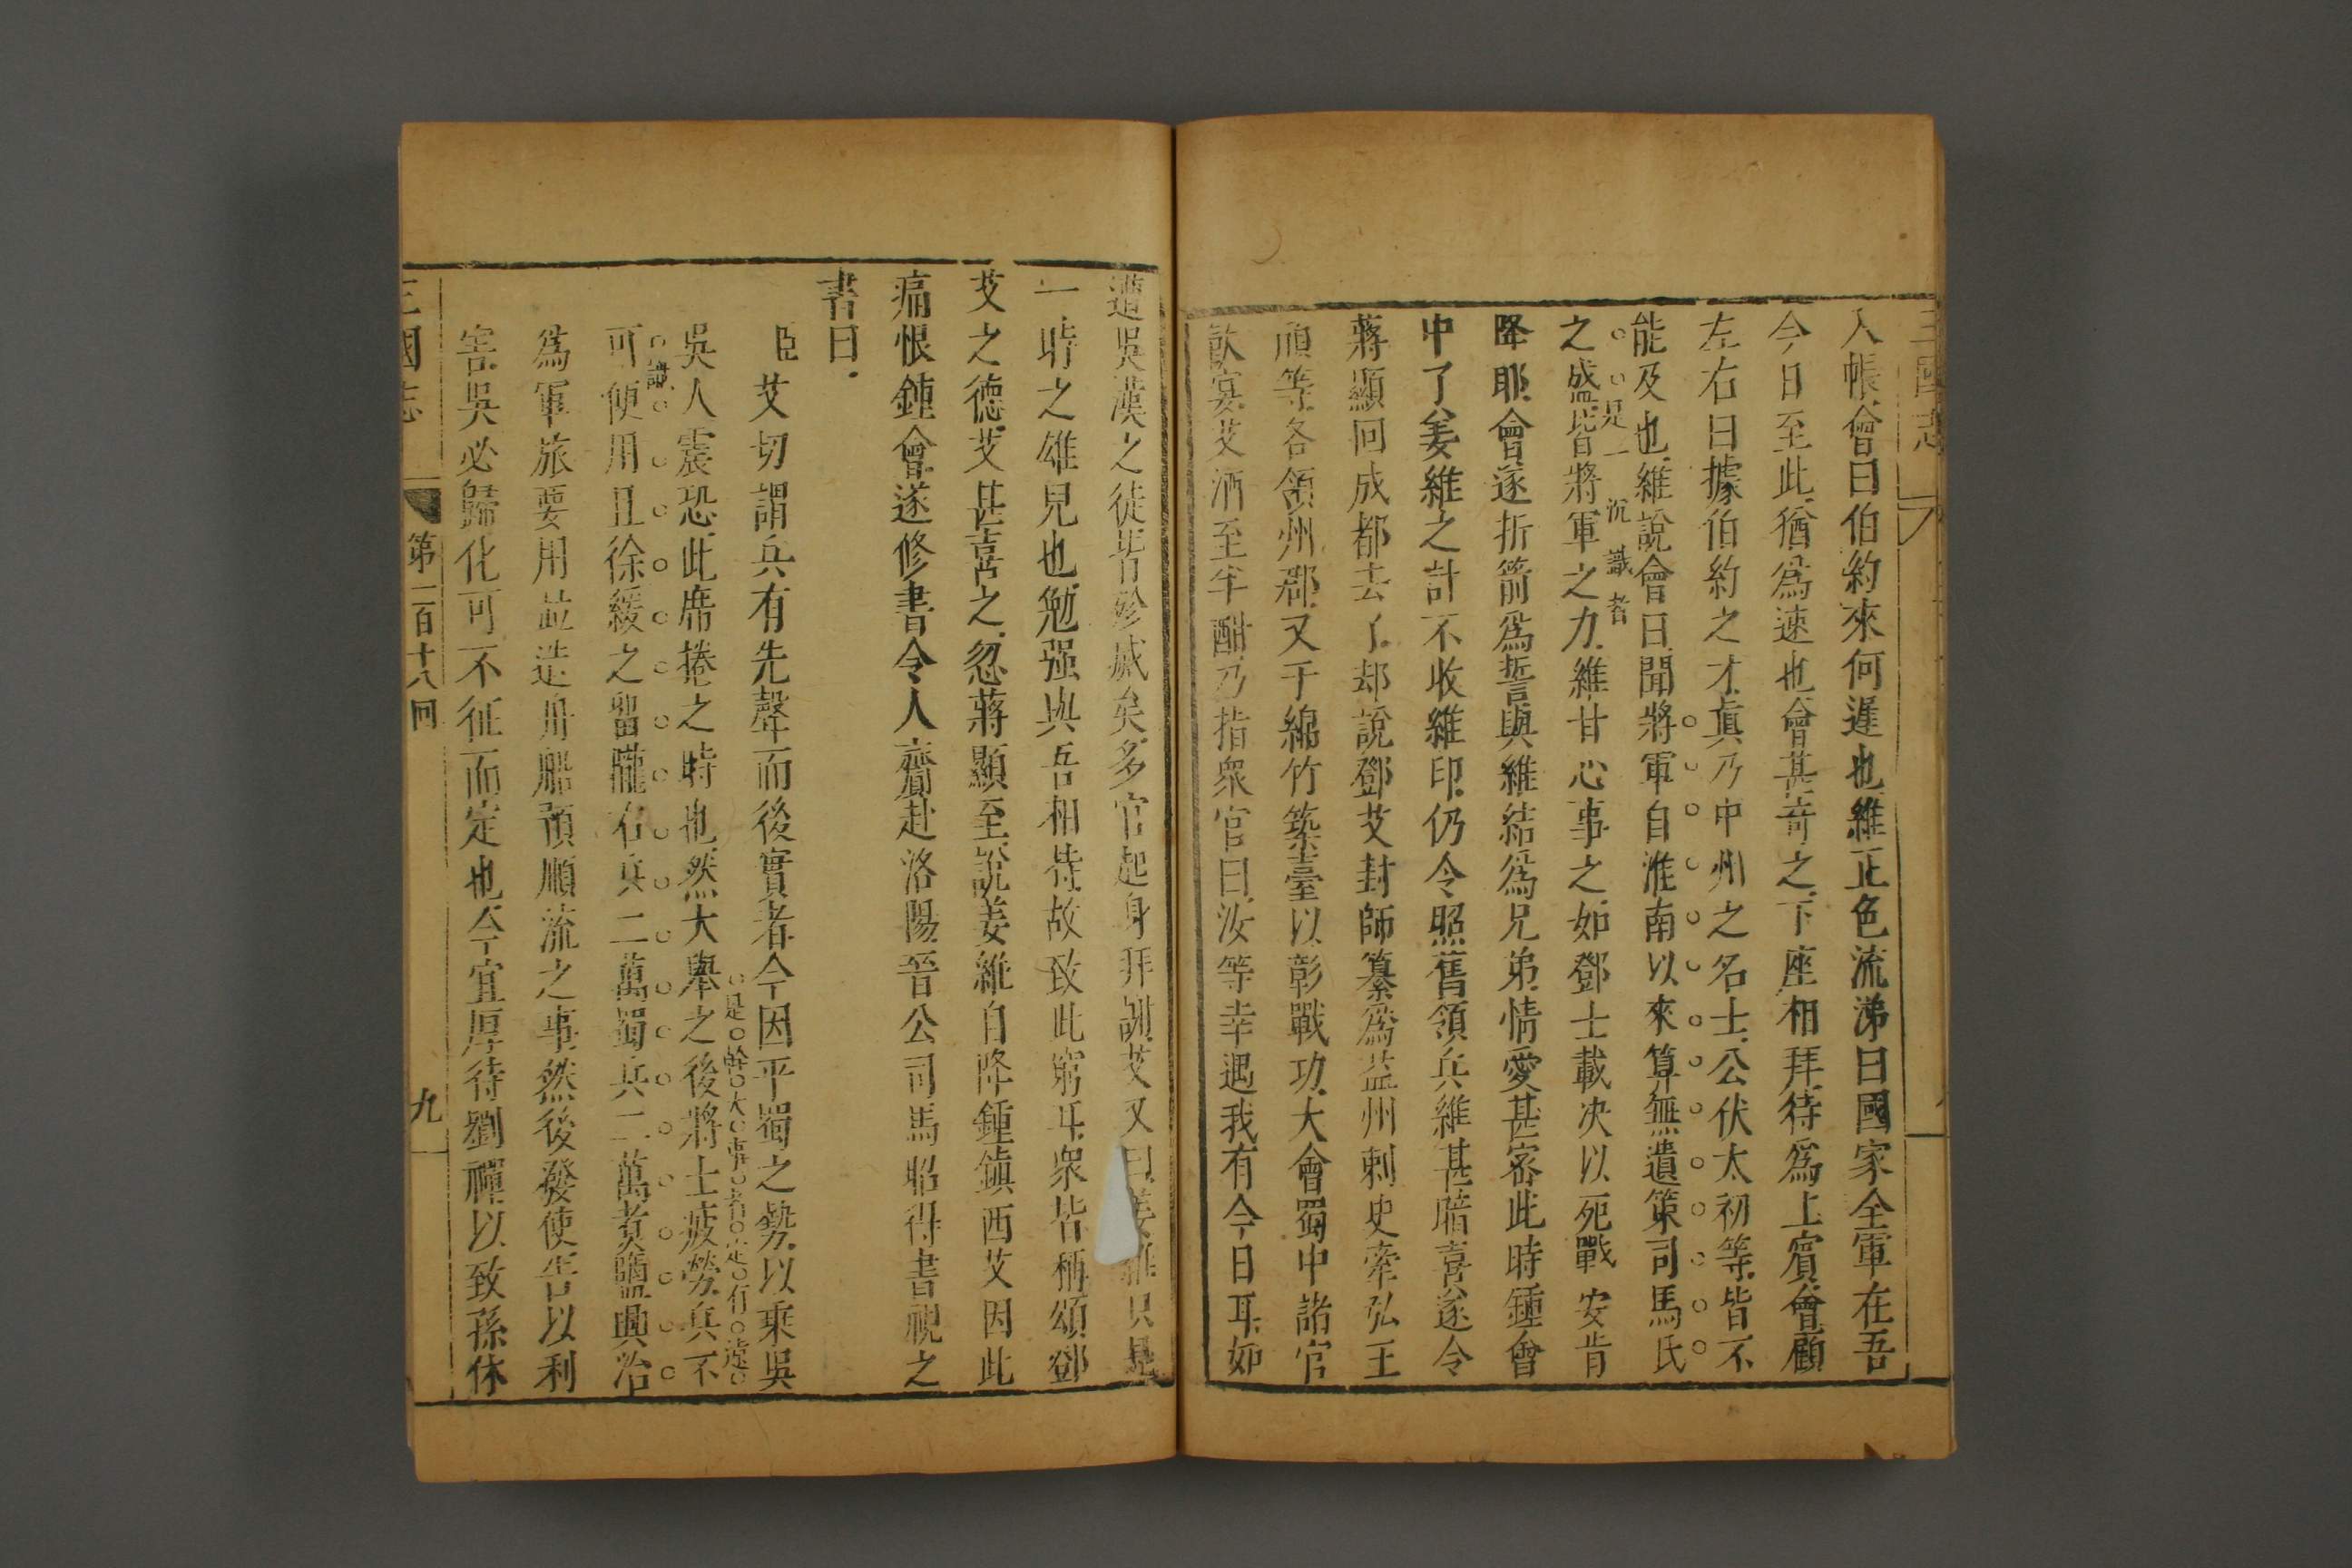 入帳會曰伯約來何遲也維正色流涕曰國家全軍在吾
今日至此猶爲速也會甚奇之下座相拜待爲上賓會顧
左右曰據伯約之才真乃中州之名士公伏太初等皆不
能及也維說會曰聞將軍自淮南以來算無遺策司馬氏
是一沉識者
之盛皆將軍之力維甘心事之如鄧士載决以死戰安肯
降耶會遂折箭爲誓與維結爲兄弟情愛甚密此時鍾會
中了姜維之計不收維印仍令照舊領兵維甚暗喜遂令
蔣顯回成都去了却說鄧艾封師纂爲益州刺史牽弘王
頎等各領州郡又于綿竹築臺以彰戰功大會蜀中諸官
飲宴艾酒至半酣乃指衆官曰汝等幸遇我有今日耳如
遭吳漢之徒皆殄滅矣多官起身拜謝艾又曰姜維只是
一時之雄兒也勉强與吾相持故致此窮耳衆皆稱頌鄧
艾之德艾甚喜之忽蔣顯至說姜維自降鍾鎮西艾因此
痛恨鍾會遂修書令人齎赴洛陽晉公司馬昭得書視之
書曰
臣艾切謂兵有先聲而後實者今因平蜀之勢以乘吳
是幹大事者定有遠
識
吳人震恐此席捲之時也然大舉之後將士疲勞兵不
可便用且徐緩之留隴右兵二萬蜀兵二萬煮鹽興冶
爲軍旅要用並造舟船預順流之事然後發使告以利
害吳必歸化可不征而定也今宜厚待劉禪以致孫休
三國志
第一百十八回
九